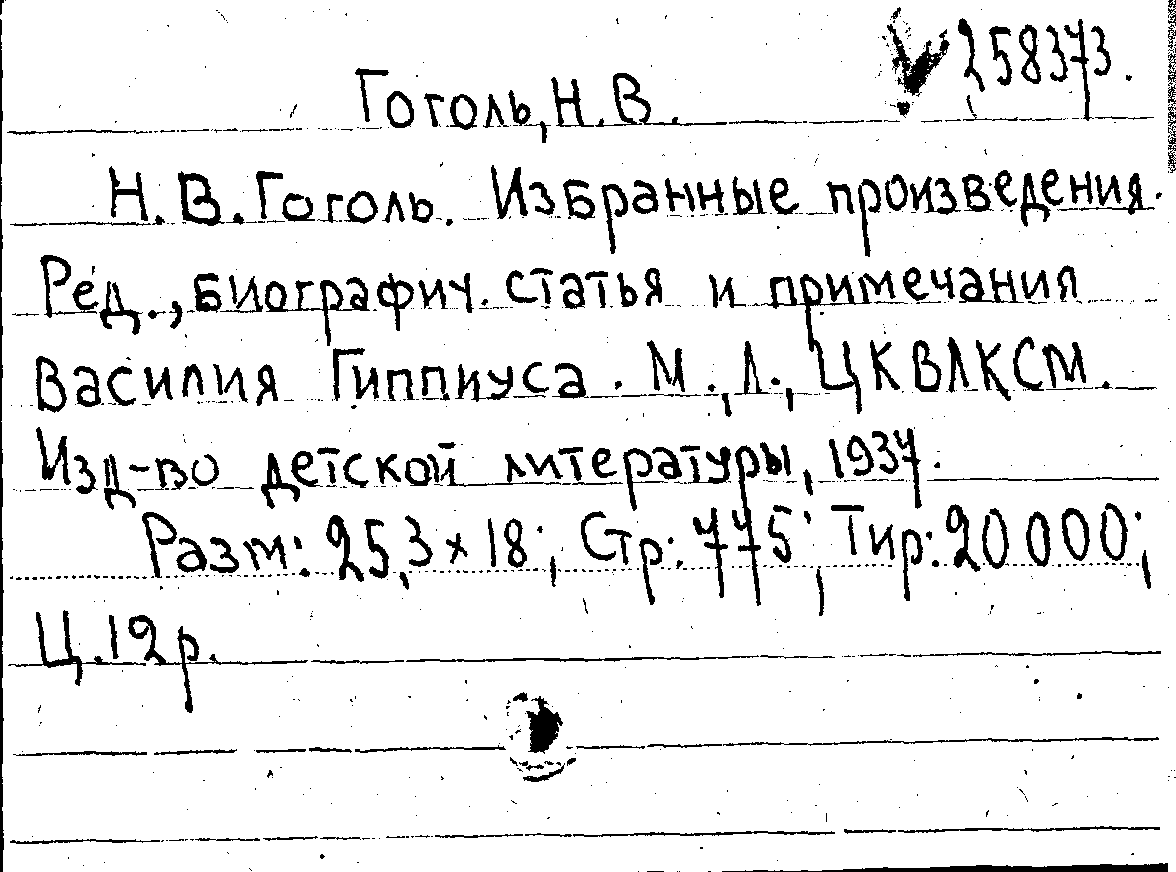 V 258373.
Гоголь, Н. В.
Н. В. Гоголь. Избранные произведения.
Ред., биографич. статья и примечания
Василия Гиппиуса. М., Л., ЦК ВЛКСМ.
Изд-во детской литературы, 1937.
Разм: 25,3 x 18; Стр: 775; Тир: 20 000;
Ц. 12 р.